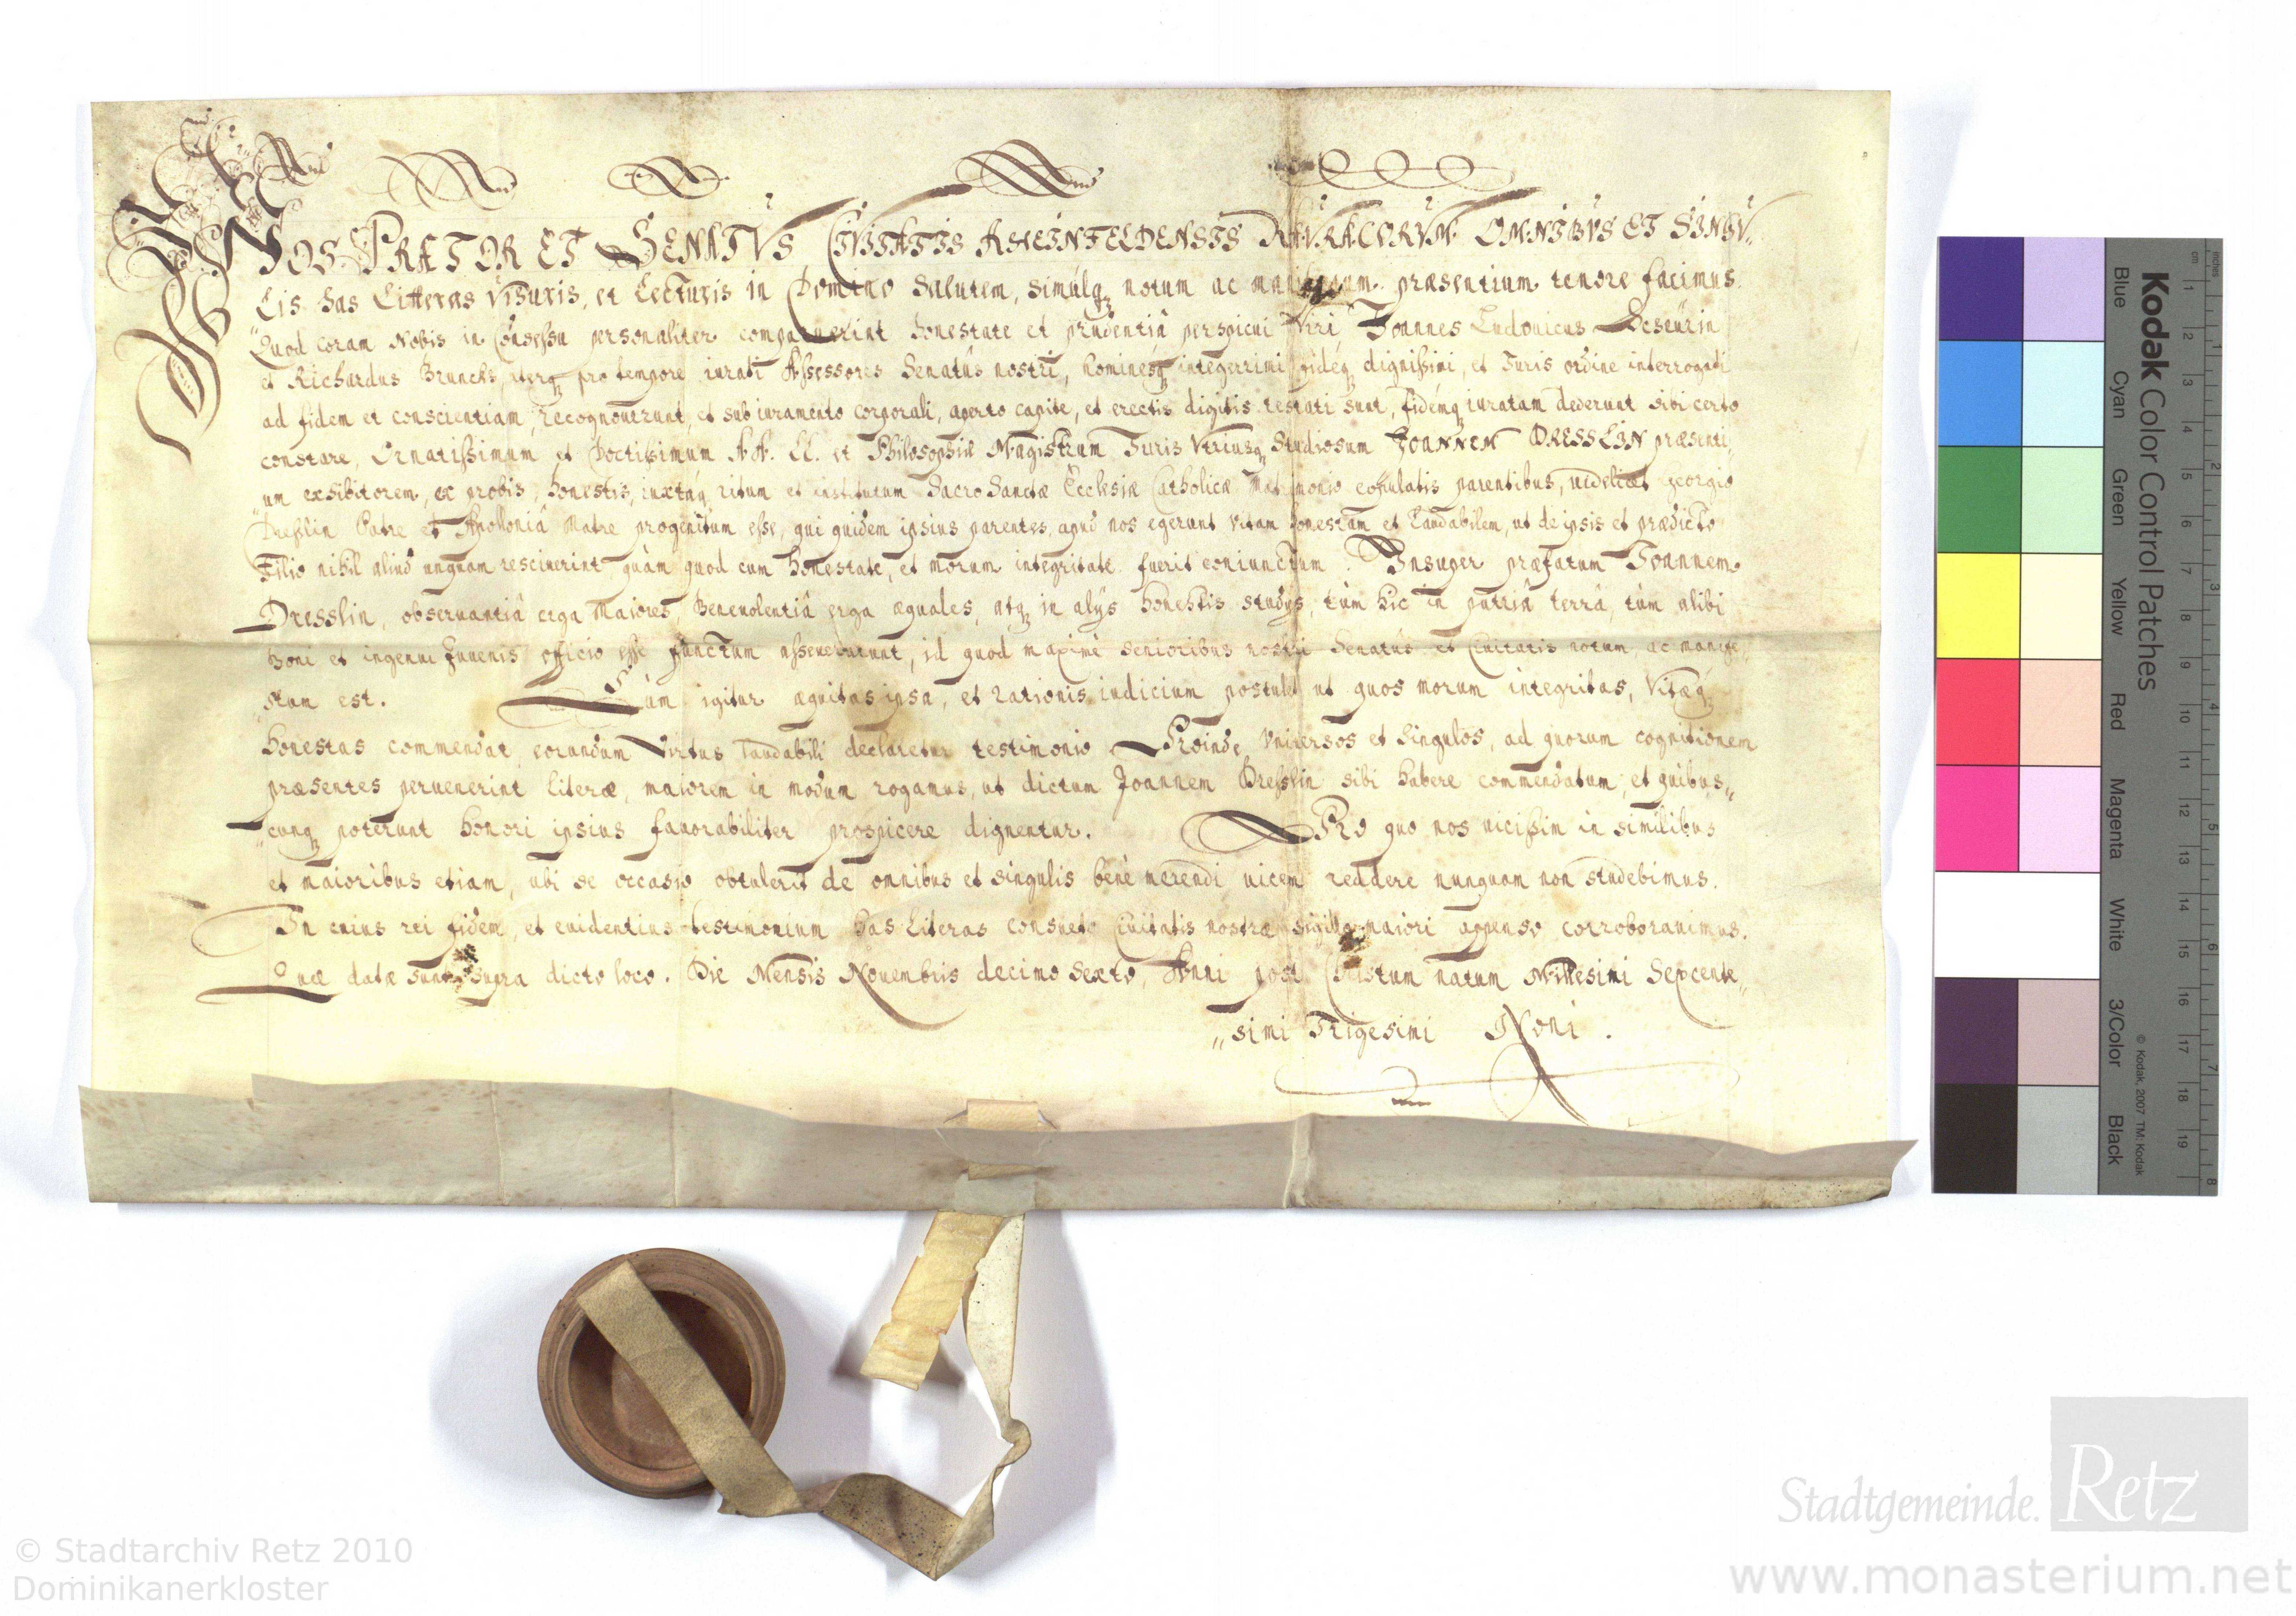 NOS PRÆTOR ET SENATVS CIVITATIS RHEINFELDENSIS RAVRACORVM OMNIBVS ET SINGV„
Lis has Litteras Visuris, et Lecturis in Domino Salutem, simúlqꝫ notum ac manifestum præsentium tenore facimus.
Quod coram Nobis in Consessu personaliter comparuerint honestate et prudentiâ perspicui Viri, Joannes Ludovicus
et Richardus uterqꝫ pro tempore iurati Assessores Senatûs nostri, hominesqꝫ integerrimi fidéqꝫ dignissimi, et Juris ordine interrogati
ad fidem et conscientiam recognouerunt, et sub iuramento corporali, aperto capite, et erectis digitis testati sunt, fidémqꝫ iuratam dederunt sibi certo
constare, Ornatissimum et Doctissimum AA. LL. et Philosophiæ Magistrum Juris Vtriusqꝫ Studiosum JOANNEM DRESSLIN præsenti„
„um exhibitorem, ex probis, honestis, iuxtáqꝫ ritum et institutum Sacro Sanctæ Ecclesiæ Catholicæ Matrimonio copulatis parentibus, uidelicet Georgio
Dresslin Patre et Apolloniâ Matre progenitum esse, qui quidem ipsius parentes, apud nos egerunt vitam honestam et laudabilem, ut de ipsis et prædicto
Filio nihil aliud unquam resciuerint quàm quod cum honestate, et morum integritate fuerit coniunctum. Insuper præfatum Joannem
Dresslin, obseruantiâ erga Maiores, Beneuolentiâ erga æquales, atqꝫ in alijs honestis studijs, tùm hic in patriâ terrâ, tùm alibi
boni et ingenui Juuenis officio esse functum asseuerarunt, id quod maximè senioribus nostri Senatûs et Ciuitatis notum, ac manife„
„stum est. Cùm igitur æquitas ipsa, et rationis iudicium postulet ut quos morum integritas, Vitæqꝫ
honestas commendat, eorundum Virtus laudabili declaretur testimonio Proinde Vniuersos et Singulos, ad quorum cognitionem
præsentes peruenerint literæ, maiorem in modum rogamus, ut dictum Joannem Dresslin sibi habere commendatum, et quibus„
„cunqꝫ poterunt honori ipsius fauorabiliter prospicere dignentur. PRo quo nos uicissim in similibus
et maioribus etiam, ubi se occasio obtulerit de omnibus et singulis benè merendi uicem reddere nunquam non studebimus.
In cuius rei fidem, et euidentius testimonium has Literas consueto Ciuitatis nostræ sigillo maiori appenso corroborauimus.
Quæ datæ sunt supra dicto loco. Die Mensis Nouembris decimo sexto, Anni post Christum natum Millesimi Sexcente„
„simi Trigesimi Noni.
Kodak Color Control Patches
Blue Cyan Green Yellow Red Magenta White 3/Color Black
© Kodak, 2007 TM: Kodak
inches 1 2 3 4 5 6 7 8
cm 1 2 3 4 5 6 7 8 9 10 11 12 13 14 15 16 17 18 19
Stadtgemeinde. Retz
© Stadtarchiv Retz 2010
Dominikanerkloster
www.monasterium.net